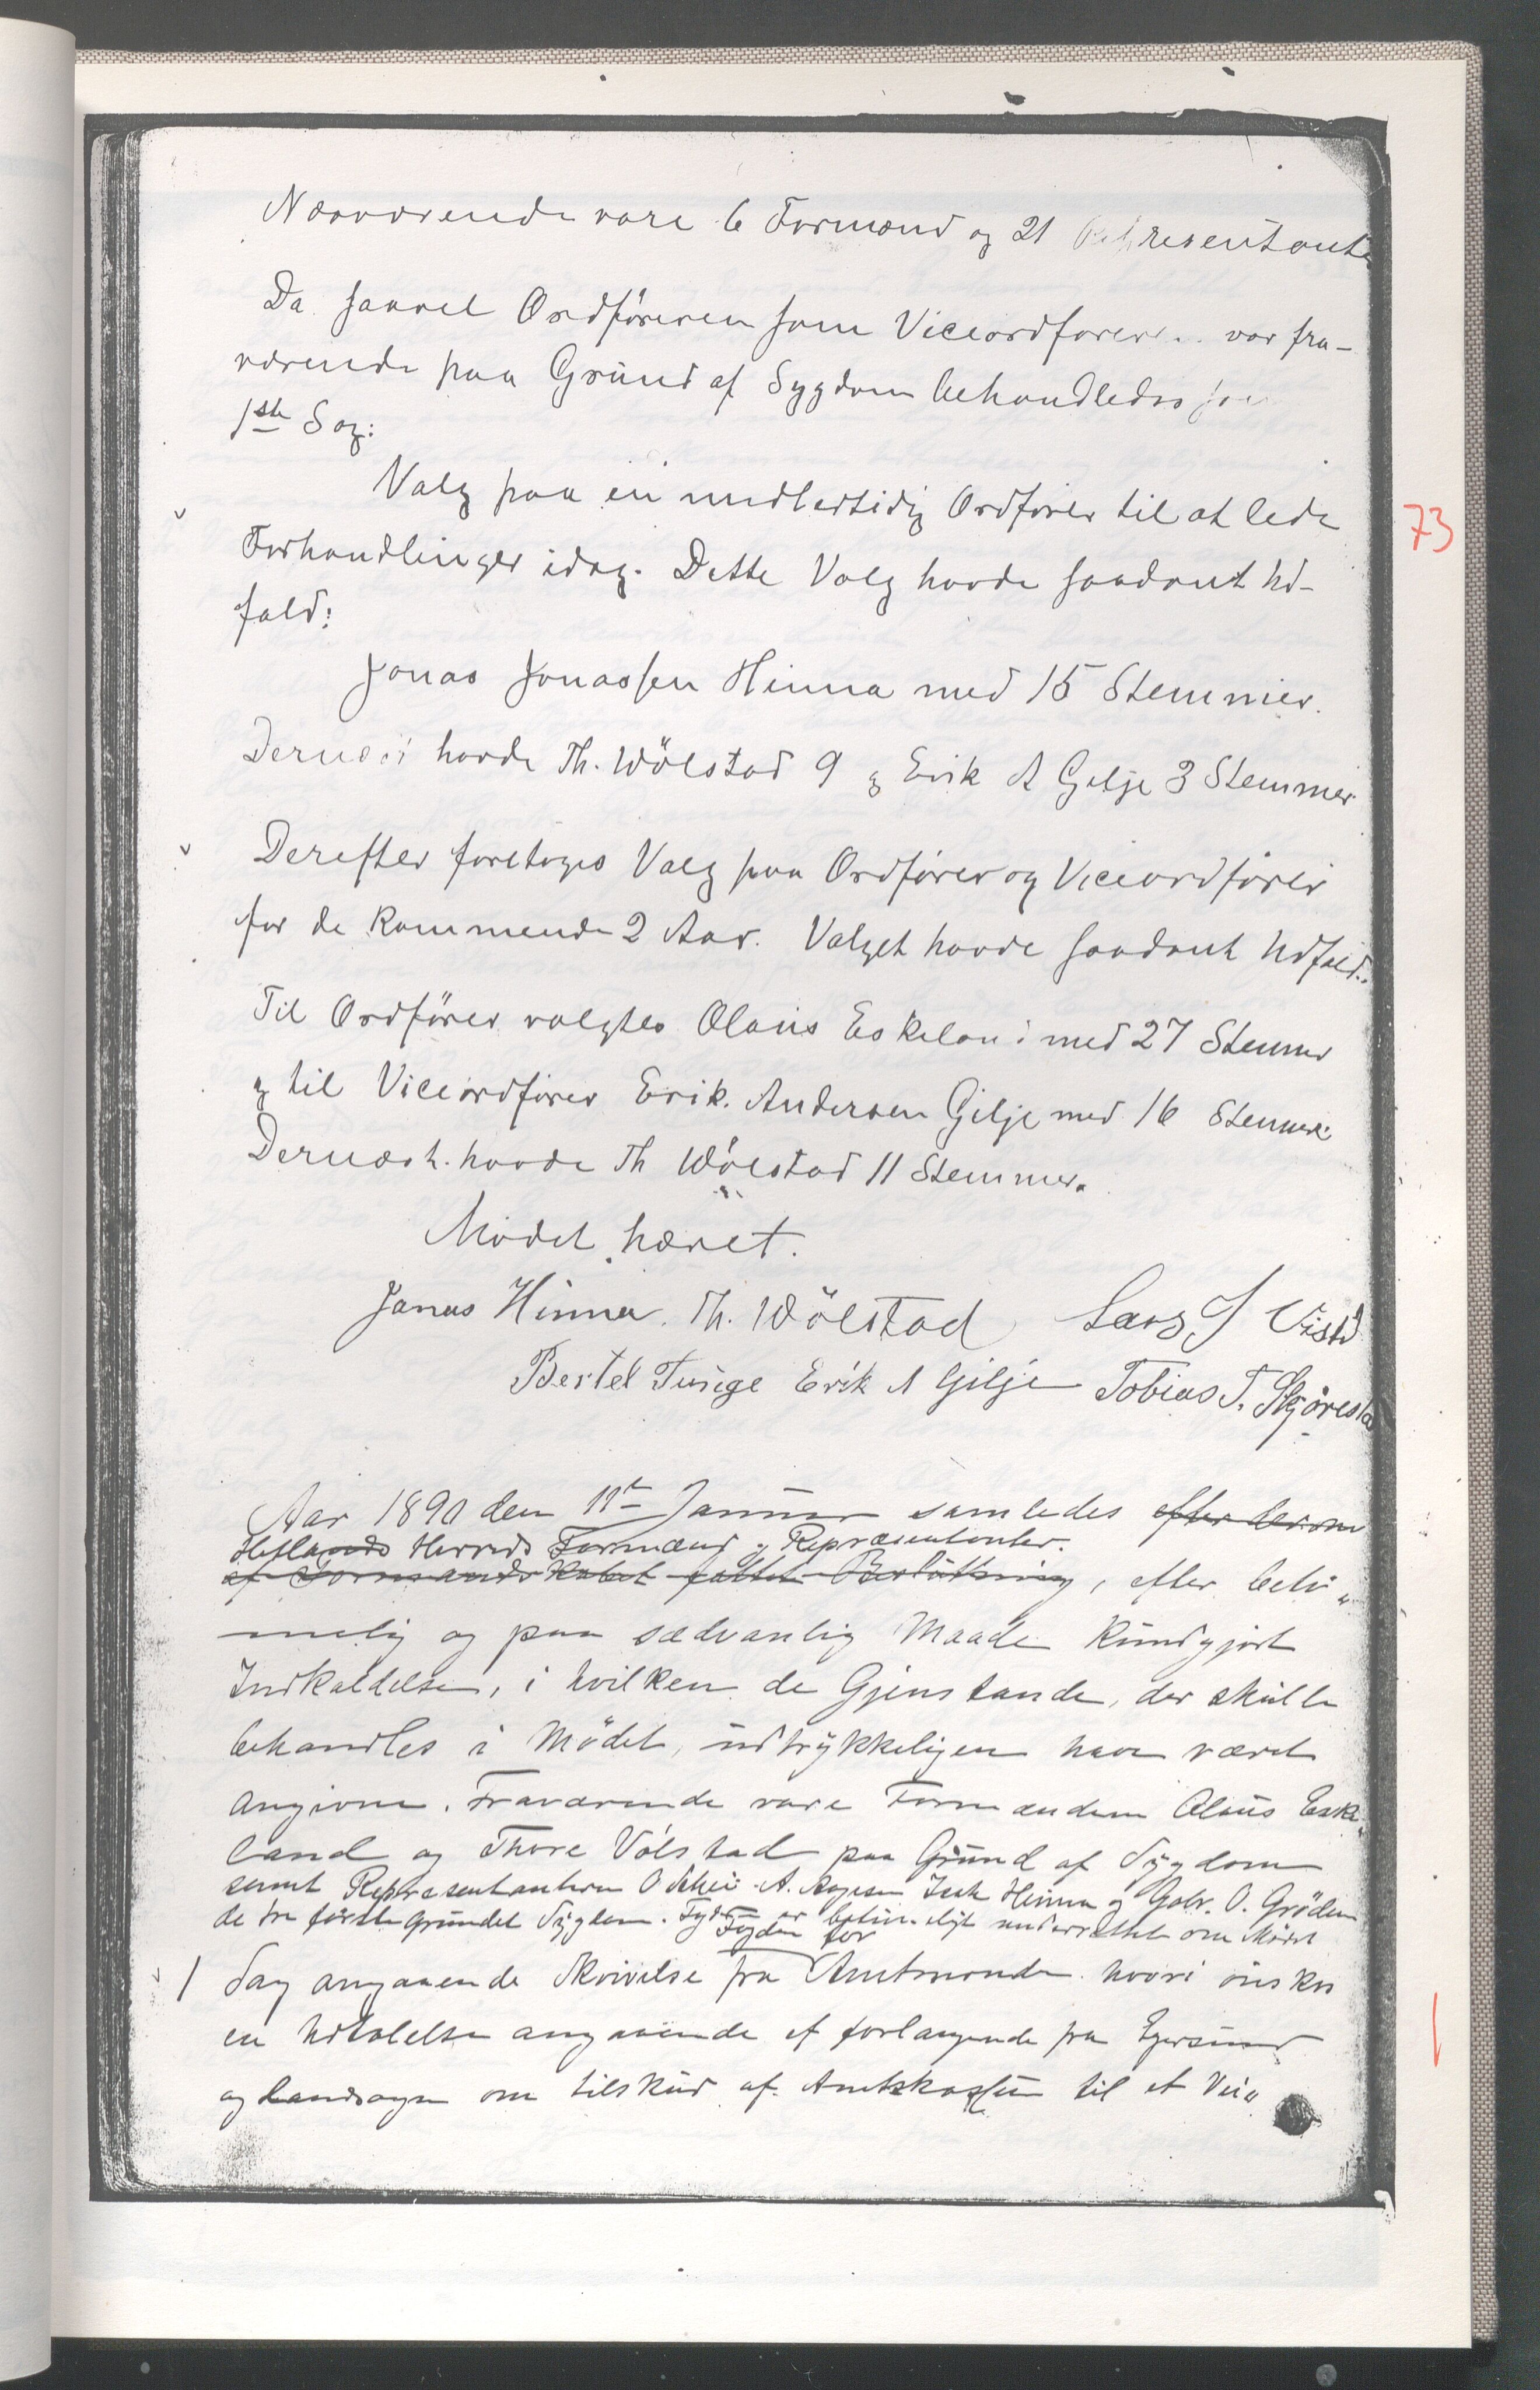 Nærværende vare 6 Formænd og 21 Repræsentanter
Da saavel Ordföreren som Viceordföreren var fra-
værende paa Grund af Sygdom behandledes som
1ste Sag:
Valg paa en midlertidig Ordfører til at lede
Forhandlinger idag. Dette Valg havde saadant Ud-
fald:
73
Jonas Jonassen Hinna med 15 Stemmer.
Dernæst havde Th. Wölstad 9 og Erik A Gilje 3 Stemmer
Derefter foretoges Valg paa Ordfører og Viceordfører
for de kommende 2 Aar. Valget havde saadant Udfald:
Til Ordfører valgtes Olaus Eskeland med 27 Stemmer
og til Viceordfører Erik Andersen Gilje med 16 Stemmer
Dernæst havde Th Wölstad 11 Stemmer.
Mødet hævet.
Jonas Hinna. Th. Wölstad Lars S Viste
Bertel Tunge Erik A Gilje Tobias T. Skjørestad
Aar 1890 den 11te Januar samledes efter derom
Hetlands Herreds Formænd og Repræsentanter.
af Formandskabet fattet Beslutning, efter beti„
melig og paa sædvanlig Maade kundgjort
Indkaldelse, i hvilken de Gjenstande, der skulle
behandles i Mødet, udtrykkeligen have været
angivne. Fraværende vare Formændene Olaus Eske„
land og Thore Völstad paa Grund af Sygdom
samt Repræsentanterne O A. Aagesen Hinna og Gabr. O. Gröden
de tre første grundet Sygdom. Fogden er betimeligt underrettet om Mødet
Fogden for
1 Sag angaaende Skrivelse fra Amtmanden hvori önskes
en Udtalelse angaaende et forlangende fra Egersund
og Landsogn om tilskud af Amtskassen til et Vei„